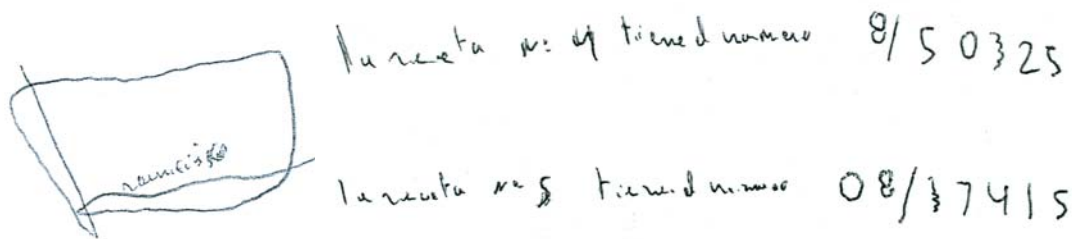 la receta nº 4 tiene el numero 8/50325
la receta nº 5 tiene el numero 08/37415